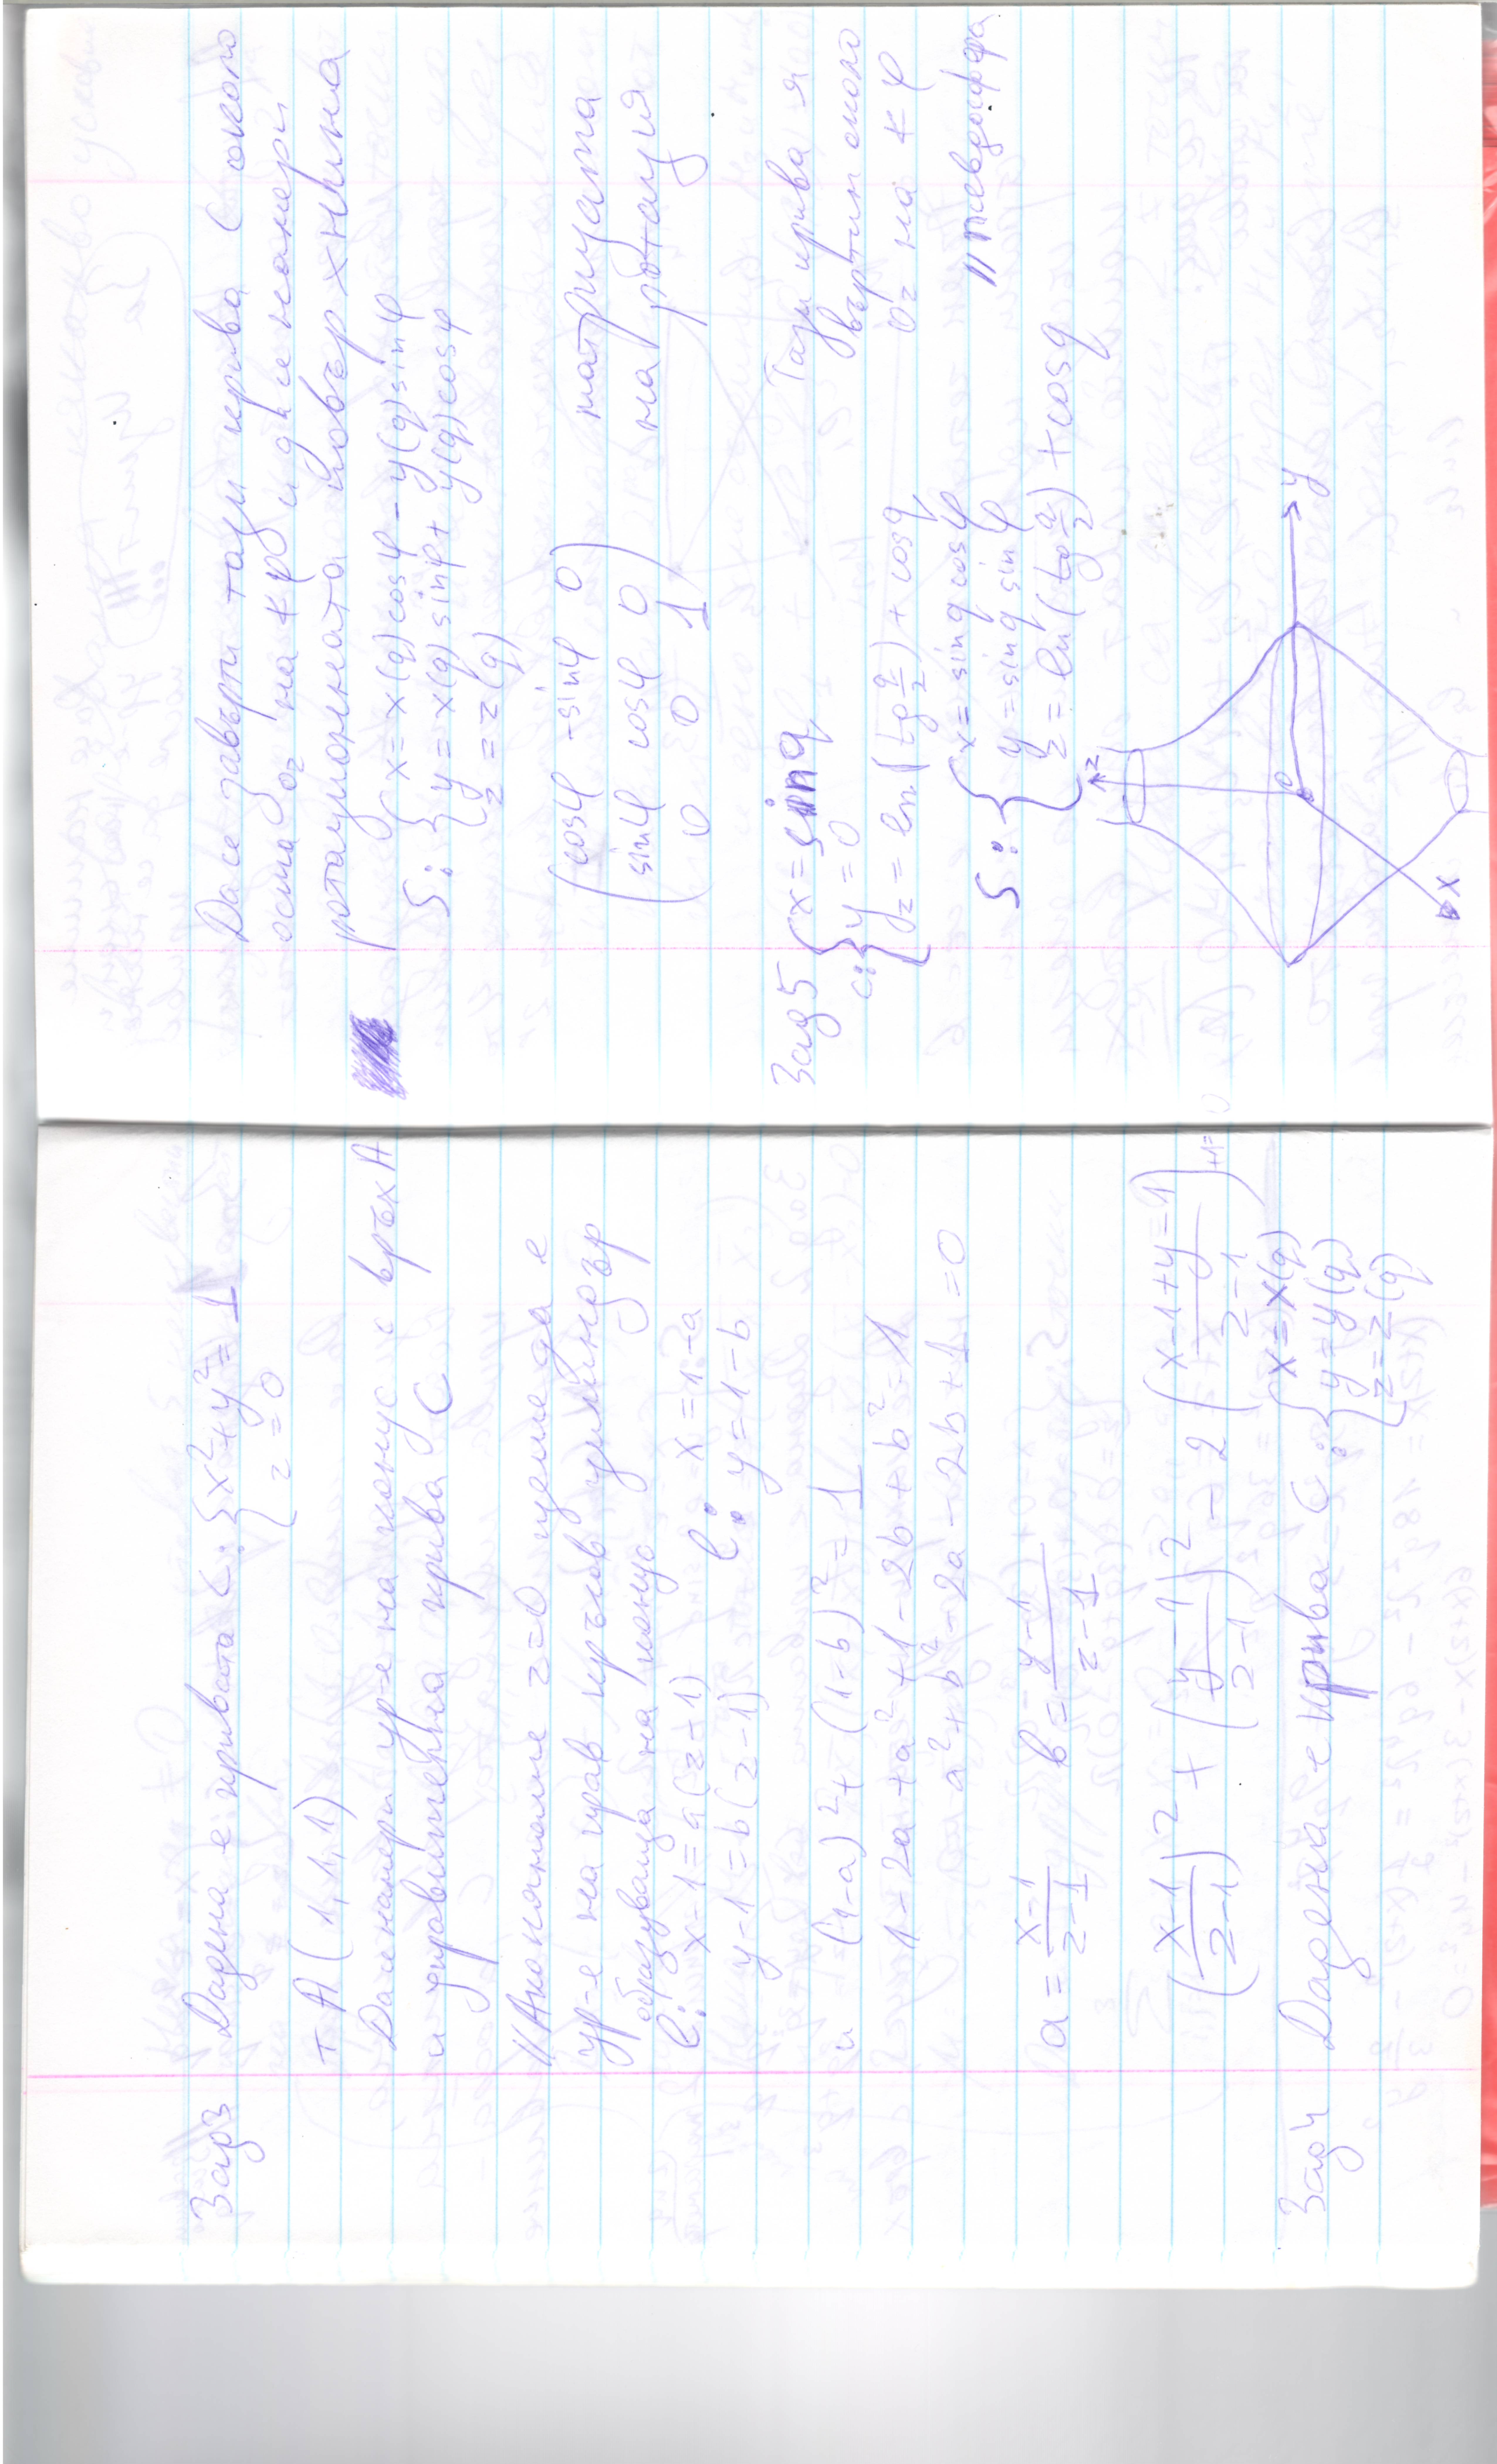 Зад3 Дадена е кривата C: {x²+y²=1
z=0
т А(1,1,1)
Да се намери ур-е на конус с връх А
и управителна крива С
// Ако копнеме z=0 ще
ур-е на прав кръгов цилиндър
образуваща на конус
l: x-1=a(z-1) l: x=1-a
y-1=b(z-1) y=1-b
(1-a)²+(1-b)²=1
1-2a+a²+1-2b+b²=1
a²+b²-2a-2b+1=0
a=\frac{x-1}{z-1} b=\frac{y-1}{z-1}
(\frac{x-1}{z-1})²+(\frac{y-1}{z-1})²-2(\frac{x-1+y-1}{z-1})+1=0
Зад4 Дадена е крива C: {x=x(q)
y=y(q)
z=z(q)
Да се завърти тази крива C около
оста Oz на ∢φ и да се намери
ротационната повърхнина
S: {x=x(q)cosφ-y(q)sinφ
y=x(q)sinφ+y(q)cosφ
z=z(q)
(cosφ -sinφ 0
sinφ cosφ 0
0 0 1) матрицата
на ротация
Зад5 c: {x=sinq
y=0
z=ln(tg\frac{q}{2})+cosq
Тази крива я
въртим около
Oz на ∢φ
S: {x=sinq cosφ
y=sinq sinφ
z=ln(tg\frac{q}{2})+cosq
// псевдосфера
z
O
y
x